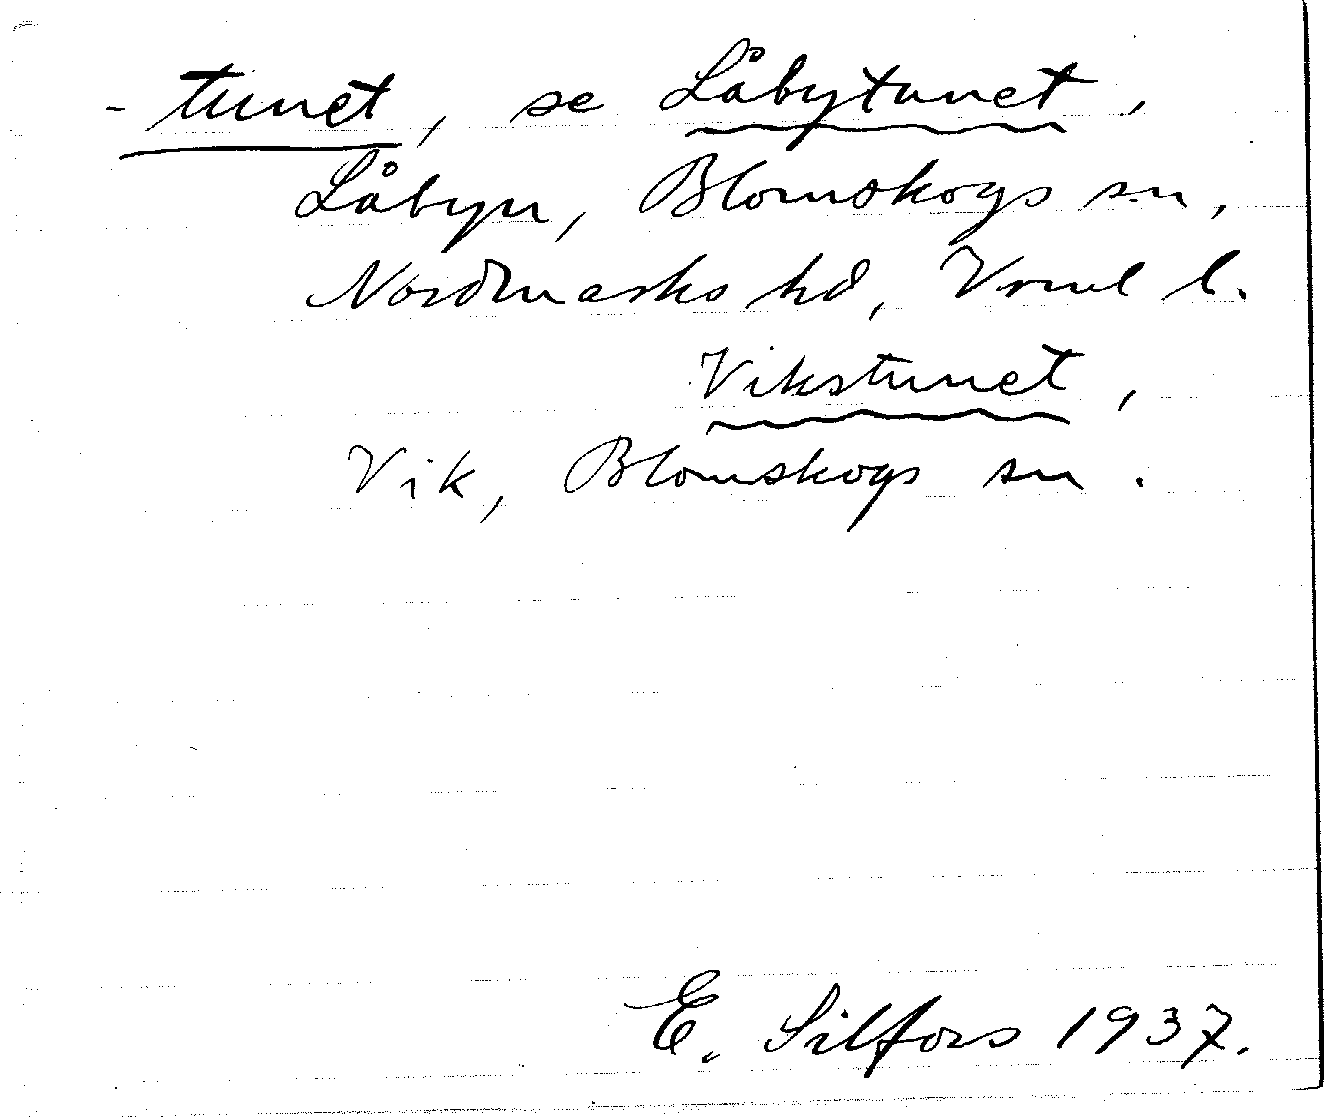 - tunet, se Låbytunet,
Låbyn, Blomskogs sn,
Nordmarks hd, Vrml l.
Vikstunet,
Vik, Blomskogs sn.
E. Silfors 1937.